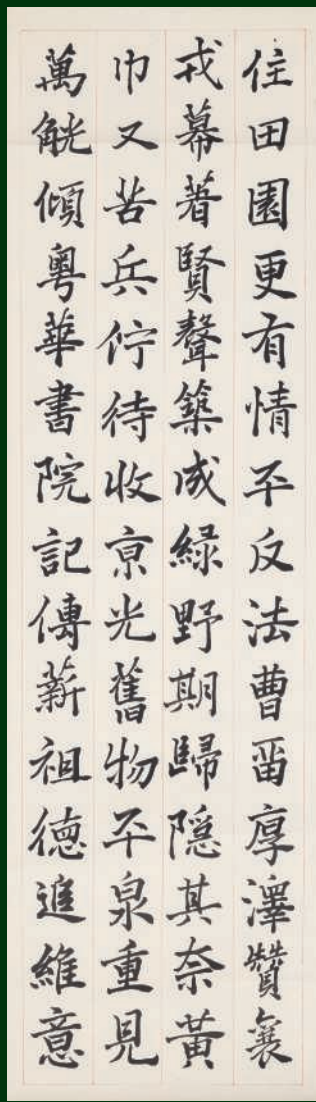 住田園更有情平反法曹畱厚澤贊襄
戎幕著賢聲築成綠野期歸隱其奈黃
巾又苦兵佇待收京光舊物平泉重見
萬觥傾粵華書院記傳薪祖德追維意